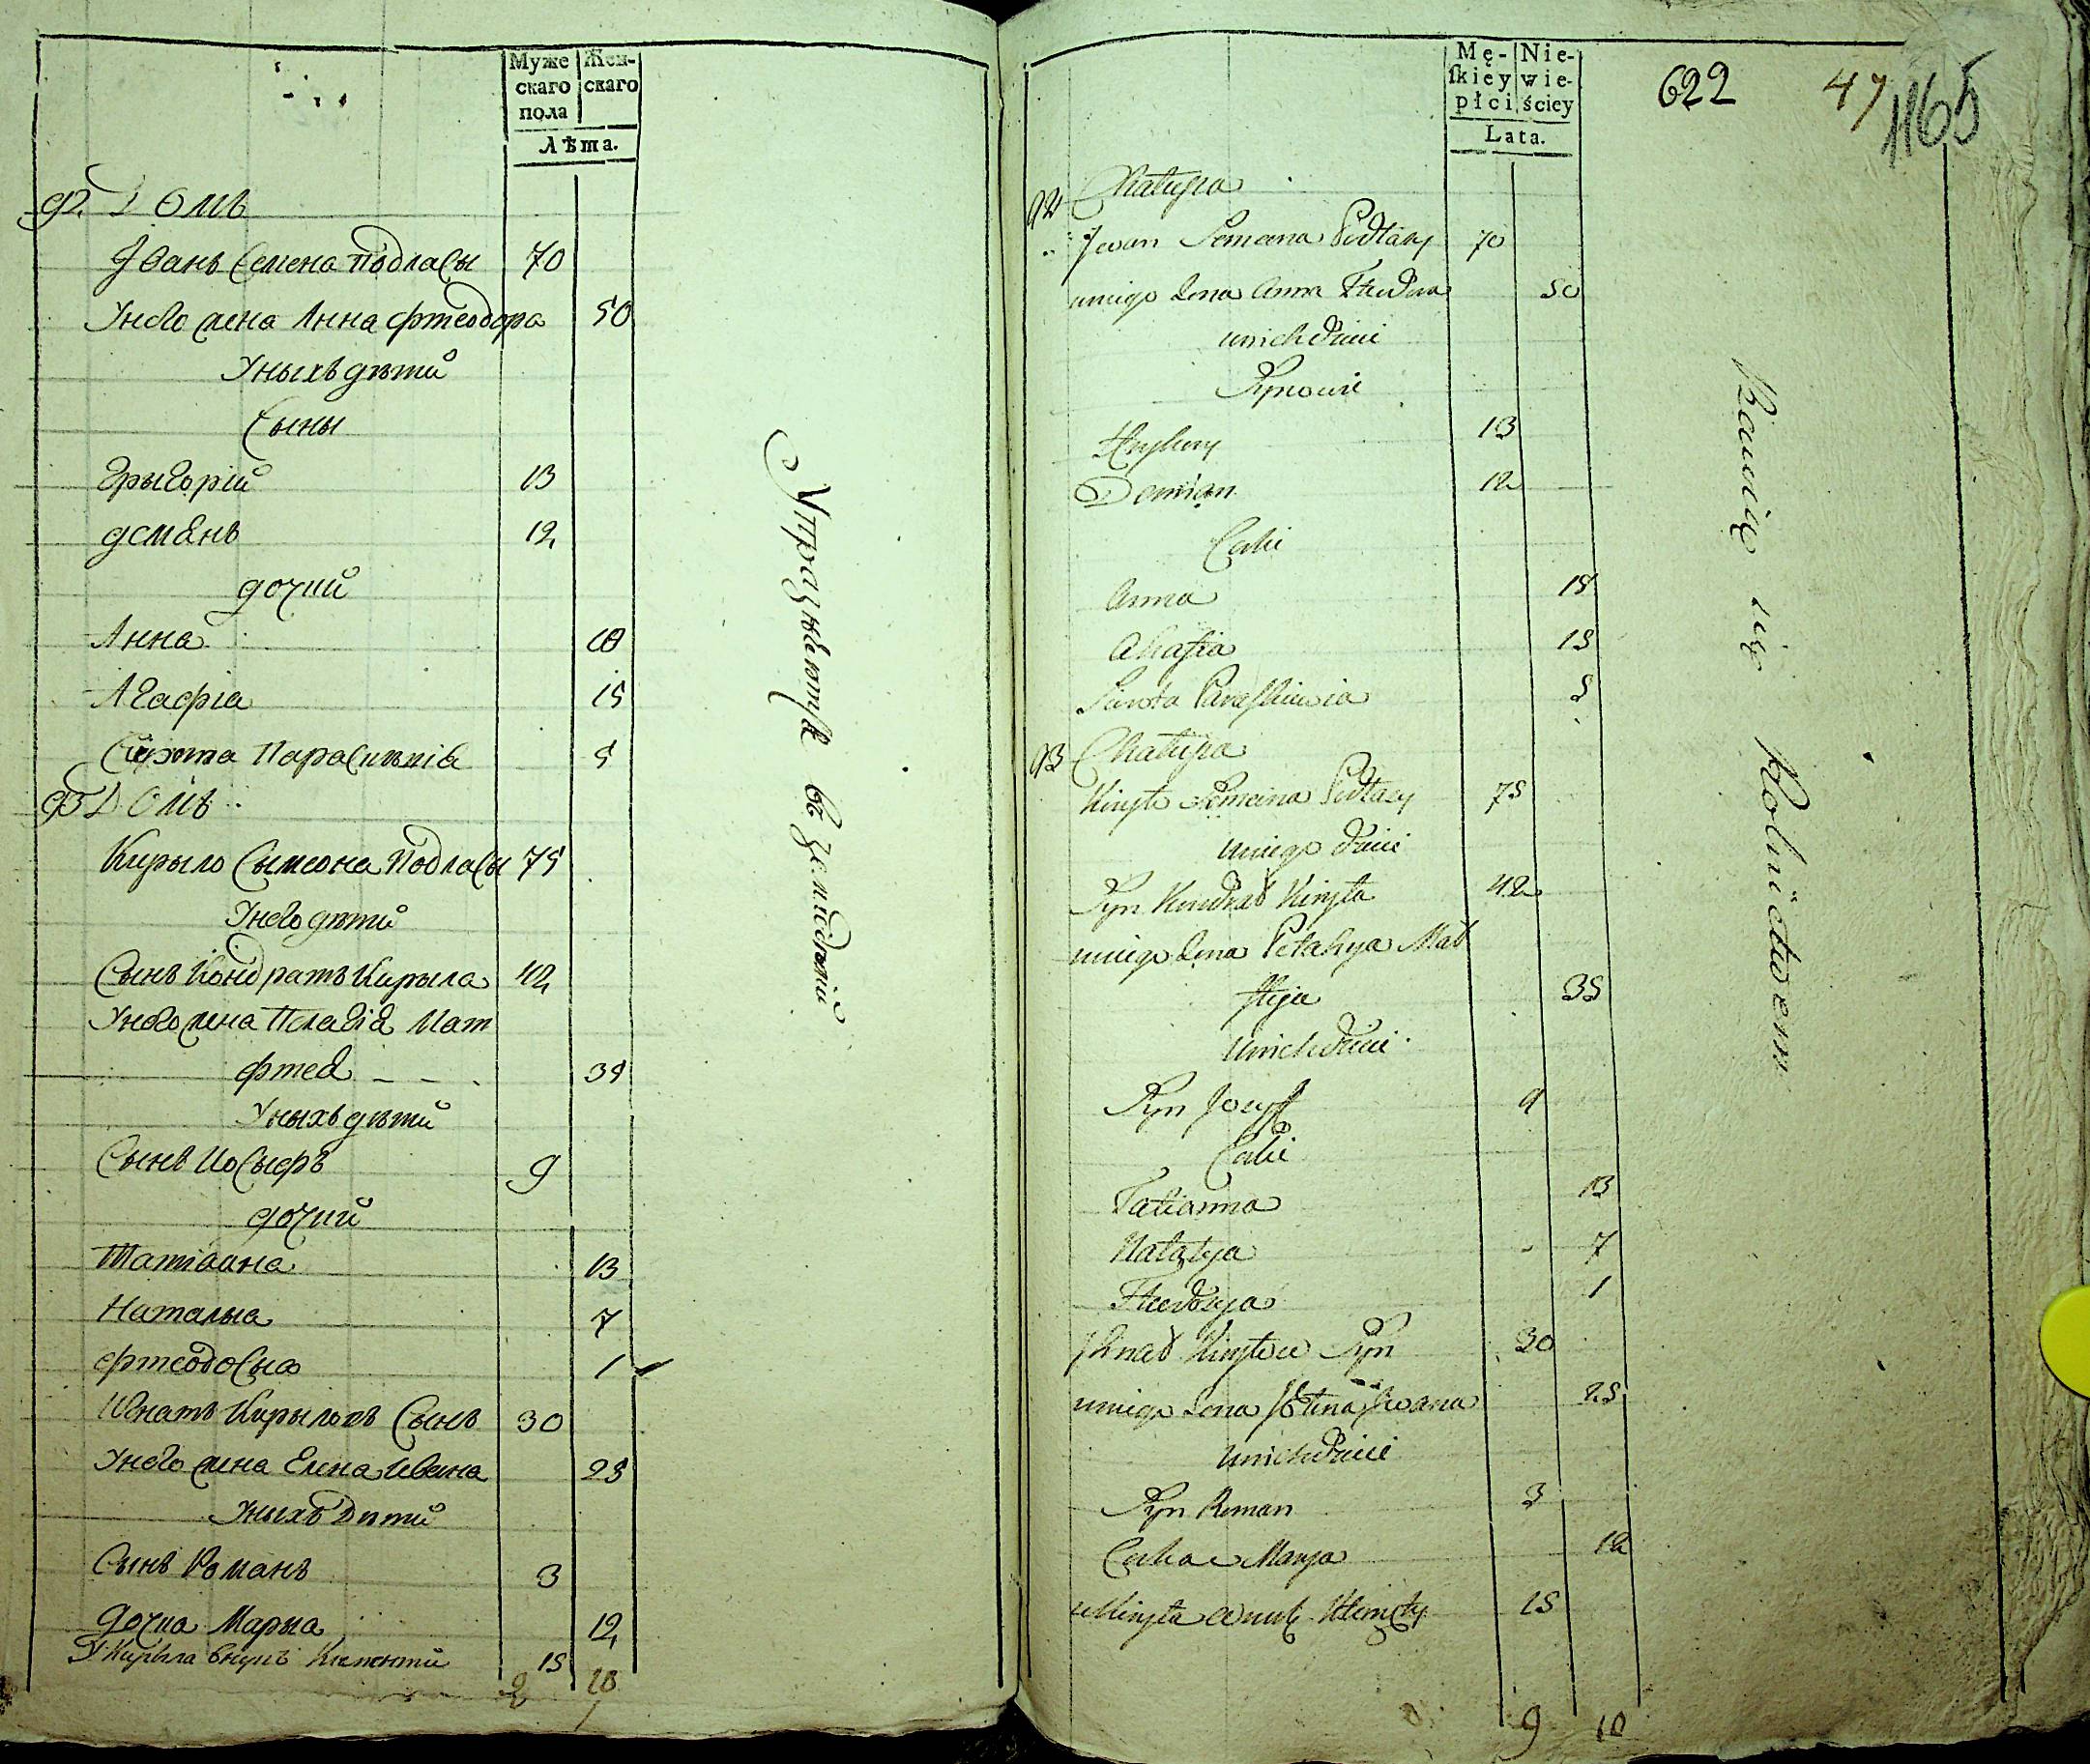 Муже
скаго
пола
Жен-
скаго
Лѣта.
92. Домъ
Иванъ Семена Подласы 70
У него жена Анна Фтеодора 50
У ныхъ дѣти
Сыны
Грыгорій 13
Демянъ 12
дочки
Анна 18
Агафія 15
Сирота Параскевія 5
93 Домъ
Кирыло Сымеона Подласы 75
У него дѣти
Сынъ Кондратъ Кирыла 42
У него жена Пелагія Мат
фтея 35
У ныхъ дѣти
Сынъ Иосыфъ 9
дочки
Татіанна 13
Наталыа 7
Фтеодосыа 1
Игнатъ Кирыловъ Сынъ 30
У него жена Елена Ивана 25
У ныхъ Дѣти
Сынъ Романъ 3
дочка Марыа 12
У Кирыла внукъ Климентій 15
9 10
Упражняютъся въ земледѣліи
Mę-
skiey
płci
Nie-
wie-
ściey
Lata.
622 47 1165
92 Chałupa
Jwan Semena Podłasy 70
u niego żona Anna Fteodora 50
u nich dzieci
Synowie
Hryhory 13
Demian 12
Corki
Anna 18
Ahafia 15
Sirota Paraskiewia 5
93 Chałupa
Kiryło Semena Podłasy 75
u niego dzieci
Syn Kondrat Kiryła 42
u niego żona Pelahya Mat
fteja 35
u nich dzieci
Syn Jozyf 9
Corki
Tatianna 13
Natalya 7
Fteodosya 1
Jhnat Kiryłow Syn 30
u niego żona Jwana 25
u nich dzieci
Syn Roman 3
Corka Marya 12
u Kiryła wnuk Klimenty 15
9 10
Bawią się Rolnictwem